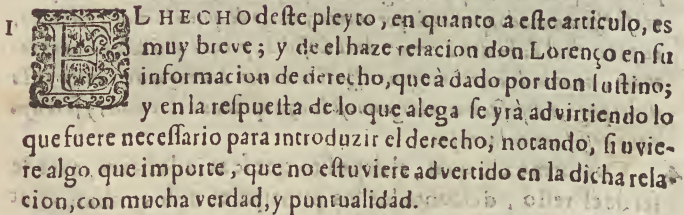 1 EL HECHO deſte pleyto, en quanto a eſte articulo, es
muy breve; y de el haze relacion don Lorenço en ſu
informacion de derecho, que à dado por don Iuſtino;
y en la reſpueſta de lo que alega ſe yrà advirtiendo lo
que fuere neceſſario para introduzir el derecho; notando, ſi uvie-
re algo que importe, que no eſtuviere advertido en la dicha rela-
cion, con mucha verdad, y puntualidad.